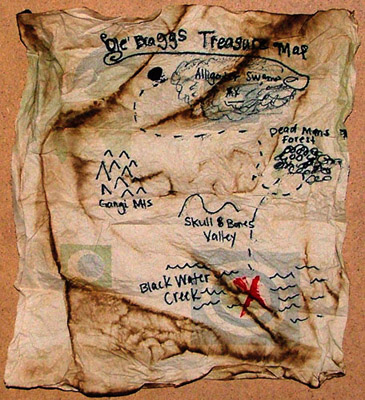 Ole' Braggs Treasure Map
Alligator Swamp
Dead Mans
Forest
Gangi Mts
Skull & Bones
Valley
Black Water
Creek
X